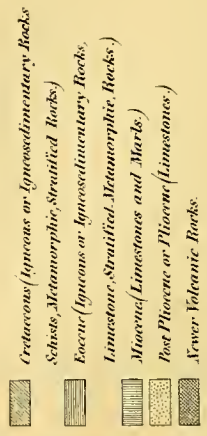 Cretaceous (Igneous or Igneosedimentary Rocks
Schists, Metamorphic, Stratified Rocks.)
Eocene (Igneous or Igneosedimentary Rocks,
Limestone, Stratified Metamorphic, Rocks.)
Miocene (Limestones and Marls.)
Post Pliocene or Pliocene (Limestones.)
Newer Volcanic Rocks.